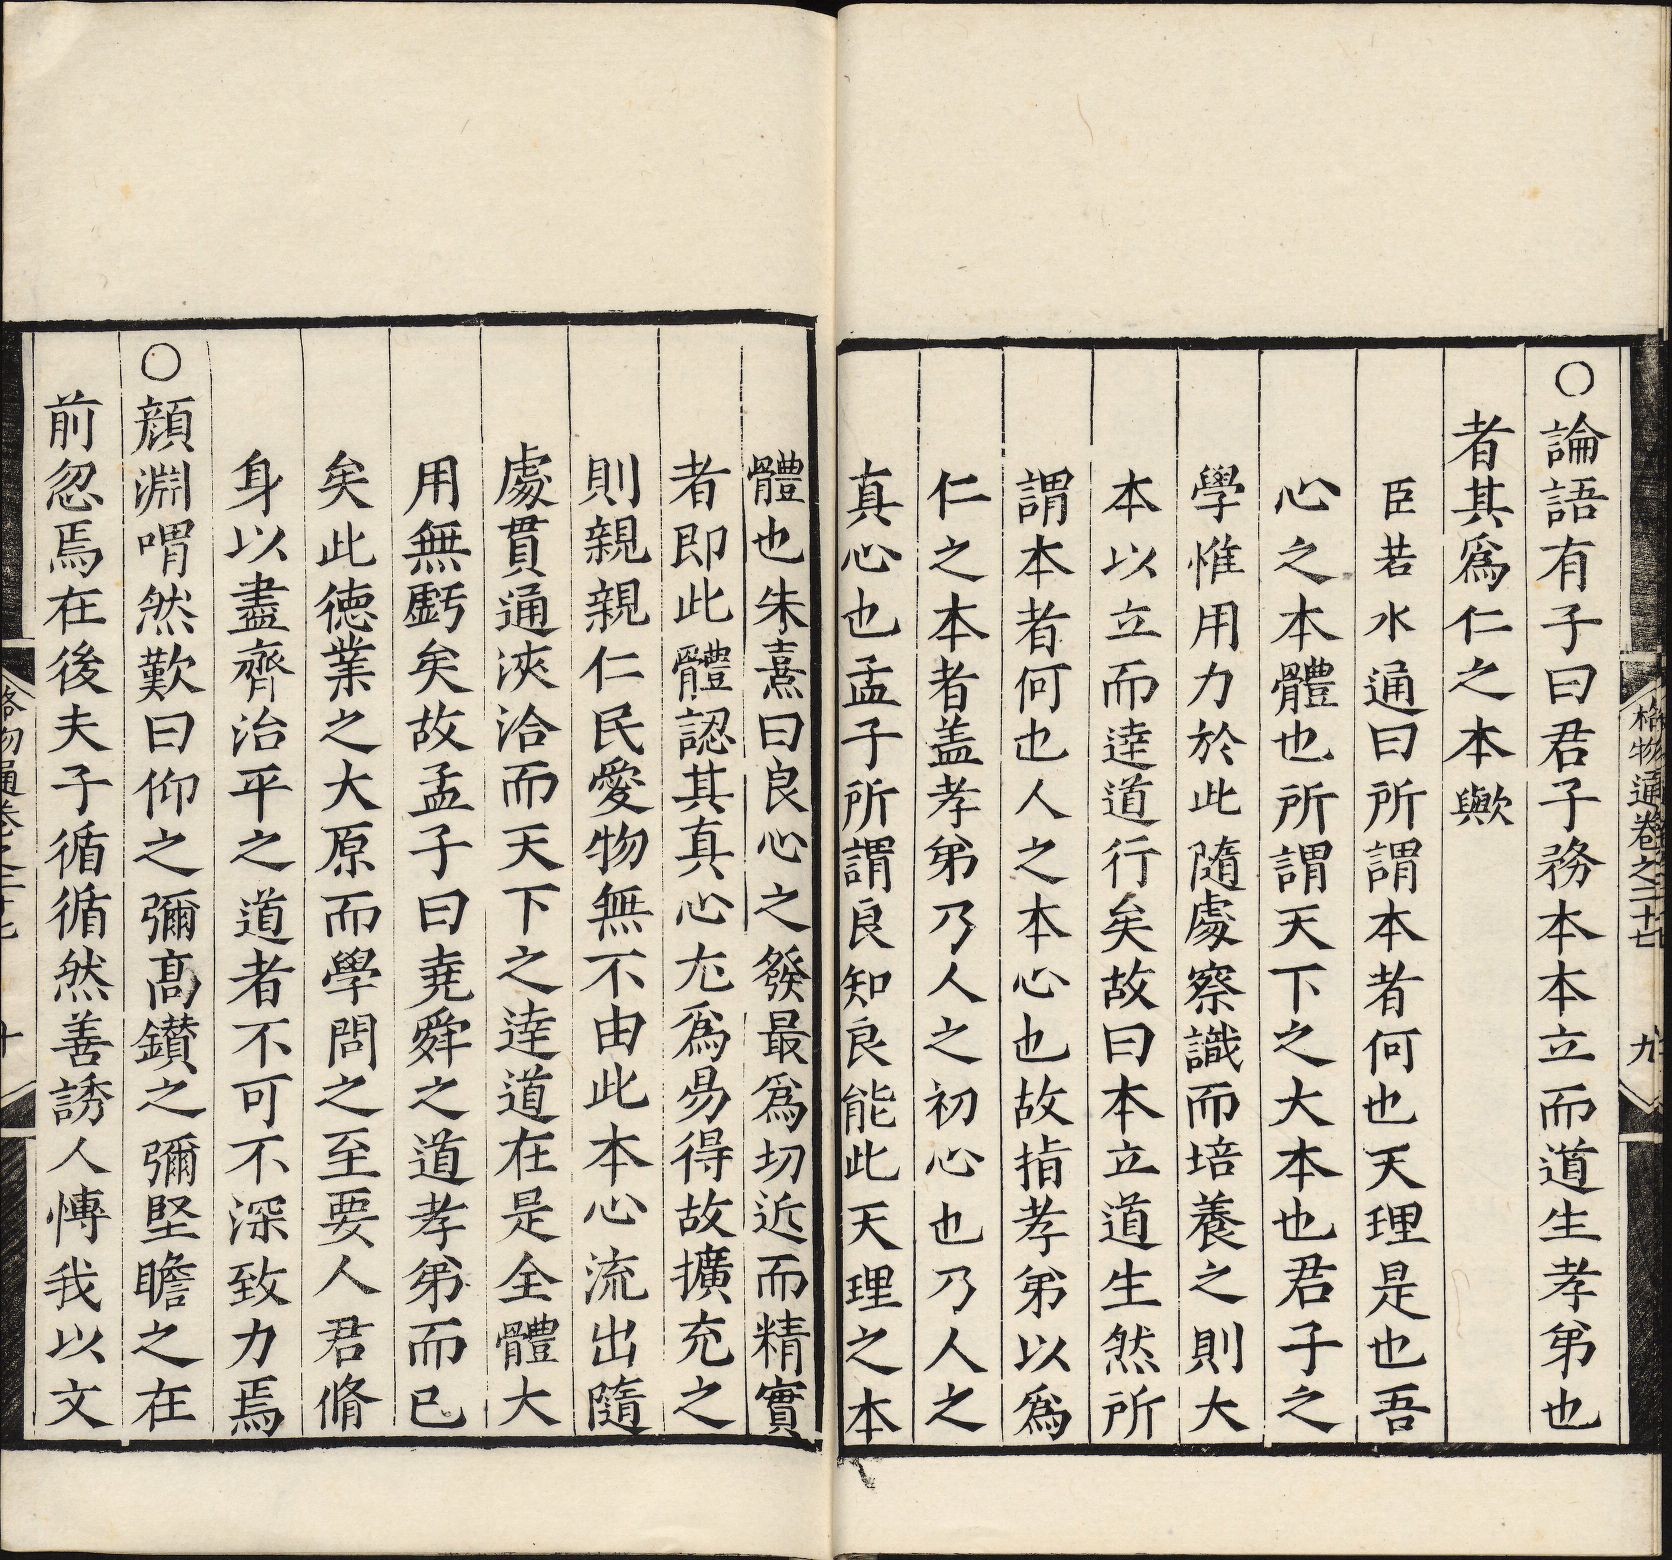 ○論語有子曰君子務本本立而道生孝弟也
者其爲仁之本歟
臣若水通曰所謂本者何也天理是也吾
心之本體也所謂天下之大本也君子之
學惟用力於此隨處察識而培養之則大
本以立而達道行矣故曰本立道生然所
謂本者何也人之本心也故指孝弟以爲
仁之本者盖孝弟乃人之初心也乃人之
真心也孟子所謂良知良能此天理之本
體也朱熹曰良心之發最爲切近而精實
者即此體認其真心尤爲易得故擴充之
則親親仁民愛物無不由此本心流出隨
處貫通浹洽而天下之達道在是全體大
用無虧矣故孟子曰堯舜之道孝弟而已
矣此德業之大原而學問之至要人君脩
身以盡齊治平之道者不可不深致力焉
○顔淵喟然歎曰仰之彌高鑚之彌堅瞻之在
前忽焉在後夫子循循然善誘人慱我以文
格物通卷之二十七
九
格物通卷之二十七
十